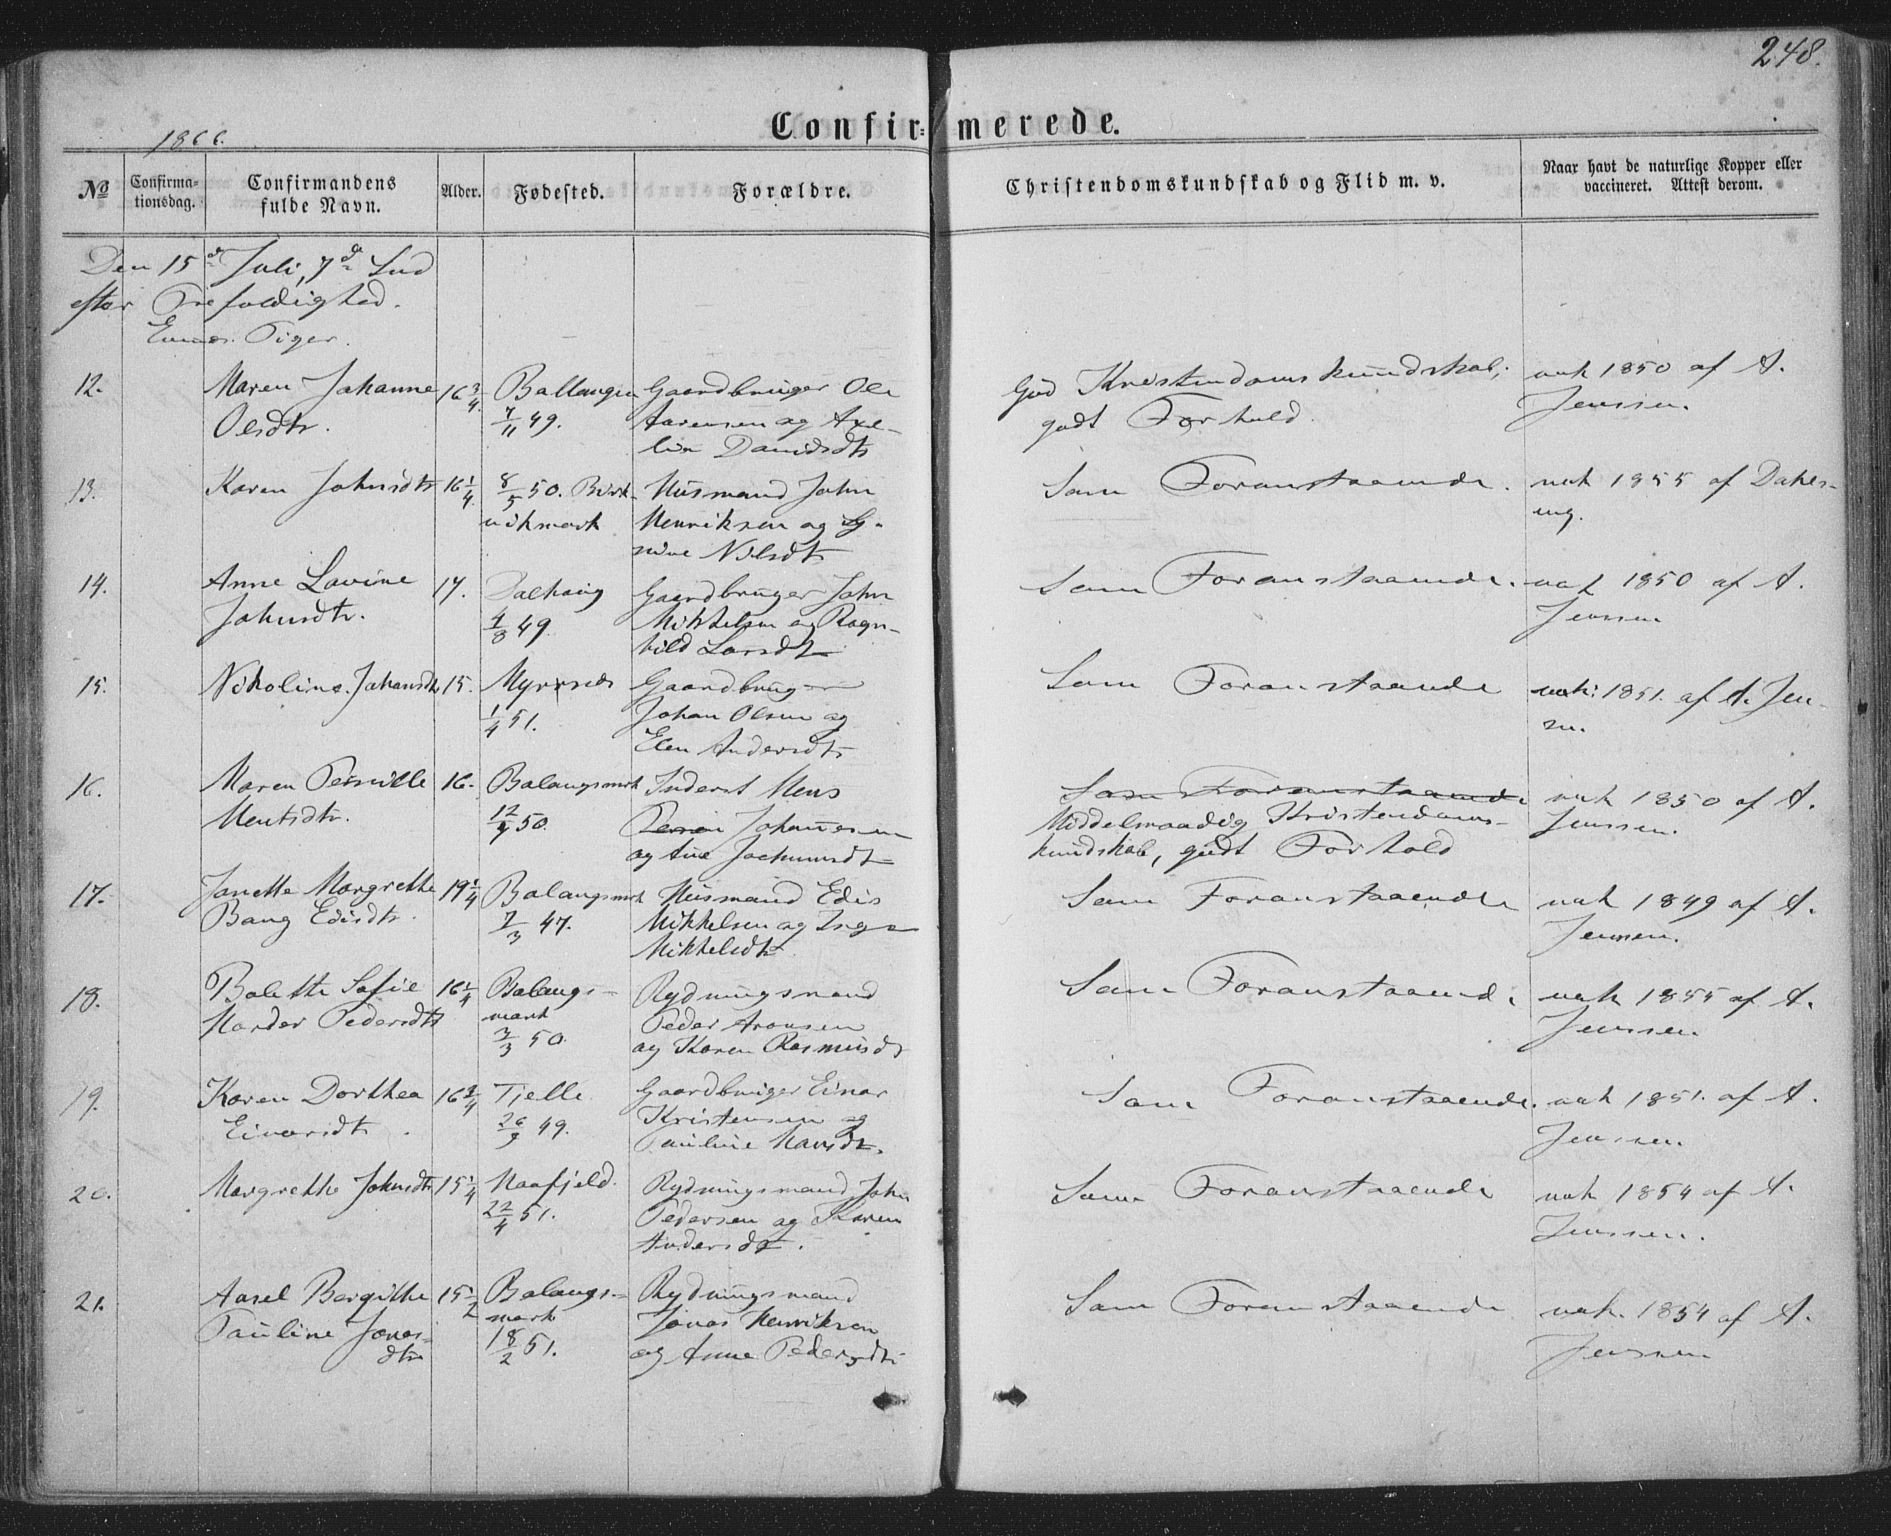 248.
Confir= merede.
1866.
No
Confirma=
tionsdag.
Confirmandens
fulde Navn.
Alder.
Fødested.
Forældre.
Christendomskundskab og Flid m. v.
Naar havt de naturlige Kopper eller
vaccineret. Attest derom.
Den 15de Juli, 7de Snd
efter Trefoldighed.
Piger.
12.
Maren Johanne
Olsdtr.
16 3/4.
Ballangen
7/11 49.
Gaardbruger Ole
Aarensen og Axe-
lin Danidsdtr
God Kristendomskundskab,
godt Forhold.
vak 1850 af A.
Jenssen.
13.
Karen Johnsdtr
16 1/4.
8/5 50. Birk-
vikmark
Husmand John
Henriksen og
Nilsdtr
Som Foranstaaende.
vak 1855 af Dahes-
ng.
14.
Anne Lovine
Johnsdtr.
17.
4/8 49.
Gaardbruger John
Mikkelsen og Ragn-
hild Larsdtr
Som Foranstaaende.
vak 1850 af A.
Jenssen
15.
Nikoline Johansdtr
15.
1/4 51.
Gaardbruger
Johan Olsen og
Elen Andersdtr
Som Foranstaaende
vak: 1851. af A. Jen-
sn.
16.
Maren Pernille
Mentsdtr.
16.
Balangsmrk
12/4 50.
Inderst Mens
Johannesen
og Ane Jochumsdtr
Som Foranstaaende
Middelmaadig Kristendoms-
kundskab, godt Forhold
vak 1850 af A.
Jenssen.
17.
Janette Margrethe
Bang Edisdtr.
19 1/4
Balangsmrk
7/3 47.
Husmand Edis
Mikkelsen og Inge
Mikkelsdtr
Som Foranstaaende
vak 1849 af A.
Jenssen.
18.
Bolette Sofie
Norder Pedersdtr
16 1/4
Balangs-
mark
7/3 50.
Rydningsmand
Peder Aronsen
og Karen Rasmusdtr
Som Foranstaaende
vak 1855 af A.
Jenssen
19.
Karen Dorthea
Einarsdtr.
16 3/4
Tjelle
26/9 49.
Gaardbruger Einar
Kristensen og
Pauline Hansdtr.
Som Foranstaaende.
vak 1851. af A.
Jenssen.
20.
Margrethe Johnsdtr
15 1/4
Haafjeld.
22/4 51.
Rydningsmand John
Pedersen og Karen
Andersdtr.
Som Foranstaaende
vak 1854 af A.
Jenssen.
21.
Aasel Bergitthe
Pauline Jonas-
dtr
15 1/2
Balangs-
mark
18/2 51.
Rydningsmand
Jonas Henriksen
og Anne Pedersdtr
Som Foranstaaende
vak. 1854 af A.
Jenssen